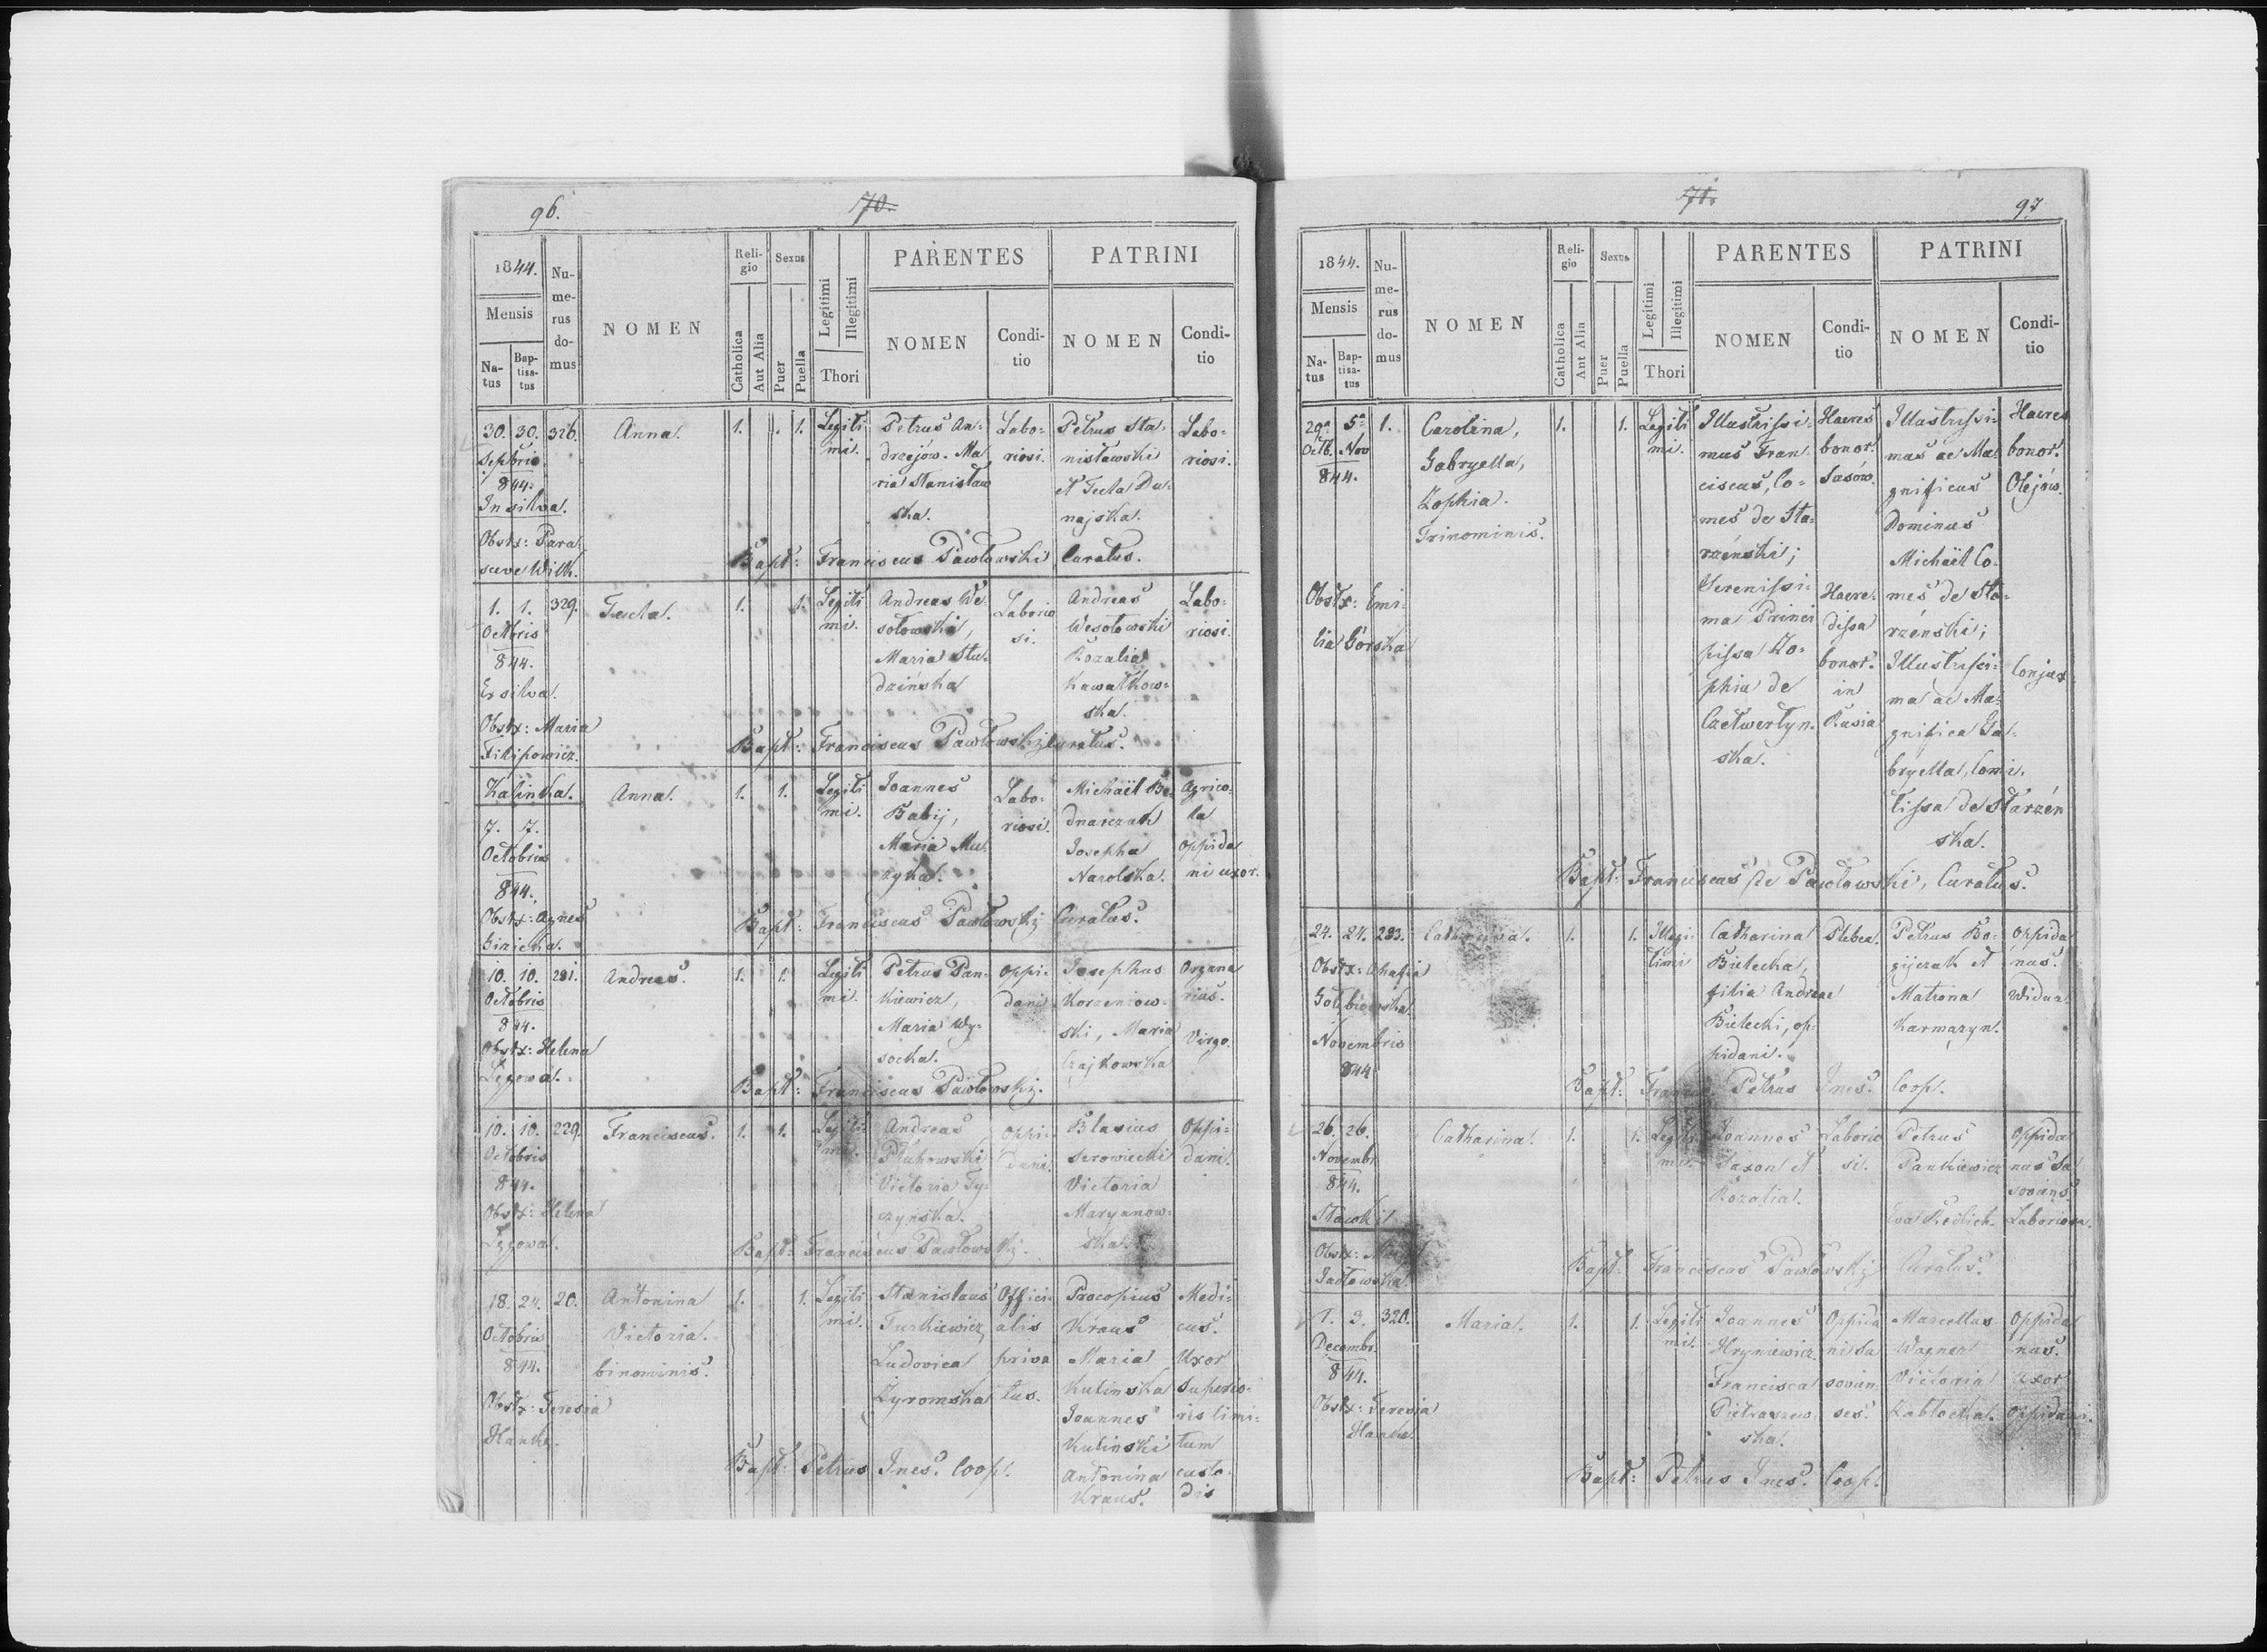 96.
70.
1844.
Mensis
Na-
tus
Bap-
tisa-
tus
Nu-
me-
rus
do-
mus
NOMEN
Reli-
gio
Catholica
Aut Alia
Sexus
Puer
Puella
Legitimi
Illegitimi
Thori
PARENTES
NOMEN
Condi-
tio
PATRINI
NOMEN
Condi-
tio
30. 30. 326.
Septbris
844.
In silva.
Obstx: Para
sceve Wilk.
Anna.
1. 1.
Legiti
mi.
Petrus An-
drzejów. Ma
ria Stanisław
ska.
Labo-
riosi.
Petrus Sta-
nisławski
et Tecla Du-
najska.
Labo-
riosi.
Bapt: Franciscus Pawłowski Curatus.
1. 1. 329.
Octbris
844.
Ex silva.
Obstx: Maria
Filipowicz.
Tecla.
1. 1.
Legiti
mi.
Andreas We-
sołowski,
Maria Stu-
dzińska
Laborio
si.
Andreas
Wesołowski
Rozalia
Kawałkow-
ska.
Labo-
riosi.
Bapt: Franciscus Pawłowski Curatus.
Kalinka.
7. 7.
Octobris
844.
Obstx: Agnes
Anna.
1. 1.
Legiti
mi.
Joannes
Babij,
Maria Mu-
zyka.
Labo-
riosi.
Michaël Be-
dnarczuk
Josepha
Narolska.
Agrico-
la
oppida
ni uxor.
Bapt: Franciscus Pawłowski Curatus.
10. 10. 281.
Octobris
844.
Obstx: Helena
Andreas.
1. 1.
Legiti
mi.
Petrus Pan-
kiewicz,
Maria Wy-
socka.
Oppi-
dani
Josephus
Korzeniow-
ski, Maria
Czajkowska
Organa
rius.
Virgo.
Bapt: Franciscus Pawłowski.
10. 10. 229.
Octobris
844.
Obstx: Helena
Franciscus.
1. 1.
Legiti-
mi.
Andreas
Pluhowski
Victoria Ty-
czyńska.
Oppi-
dani.
Blasius
Serowiecki
Victoria
Maryanow-
ska.
Oppi-
dani.
Bapt: Franciscus Pawłowski.
18. 24. 20.
Octobris
844.
Obstx: Teresia
Hanke.
Antonina
Victoria.
binominis.
1. 1.
Legiti
mi.
Stanislaus
Turkiewicz
Ludovica
Żyromska
Offici-
alis
priva
tus.
Procopius
Kraus
Maria
Kulinska
Joannes
Kulinski
Antonina
Kraus.
Medi-
cus.
Uxor
Superio-
ris limi-
tum
custo-
dis
Bapt: Petrus Ines. Coop.
71.
97
1844.
Mensis
Na-
tus
Bap-
tisa-
tus
Nu-
me-
rus
do-
mus
NOMEN
Reli-
gio
Catholica
Ant Alia
Sexus
Puer
Puella
Legitimi
Illegitimi
Thori
PARENTES
NOMEN
Condi-
tio
PATRINI
NOMEN
Condi-
tio
29a 5a 1.
Octb. Nov
844.
Obstx: Emi-
lia Górska
Carolina,
Gabryella,
Zophia.
Trinominis.
1. 1.
Legiti
mi.
Illustrissi-
mus Fran
ciscus, Co-
mes de Sta-
rzeński;
Serenissi-
ma Princi
pissa Zo-
phia de
Czetwertyn-
ska.
Haeres
bonor.
Sasów.
Haere-
dissa
bonor.
in
Rusia
Illustrissi-
mus ac Ma
gnificus
Dominus
Michaël Co-
mes de Sta-
rzeński;
Illustrissi-
ma ac Ma-
gnifica Ga-
bryella, Comi-
tissa de Starzen
ska.
Haeres
bonor.
Olejów.
Conjux
Bapt: Franciscus de Pawłowski, Curatus.
24. 24. 283.
Obstx: Ahafia
Gołbiowska
Novembris
844
Catharina.
1. 1.
Illegi-
timi
Catharina
Bielecka,
filia Andreae
Bielecki, op-
pidani.
Plebea.
Petrus Bo-
gijczuk et
Matrona
Karmazyn.
Oppida
nus.
Vidua
Bapt: Petrus Ines. Coop.
26. 26.
Novembr.
844.
Obstx:
Catharina.
1. 1.
Legiti
mi.
Joannes
Saxon et
Rozalia.
Laborio
si.
Petrus
Pankiewicz
Eva Redlich.
Oppida
nus Sa
soviens
Laboriosa.
Bapt: Franciscus Pawłowski Curatus.
1. 3. 320.
Decembr.
844.
Obstx: Teresia
Hanke.
Maria.
1. 1.
Legiti
mi.
Joannes
Hryniewicz
Francisca
Pietraszew-
ska.
Oppida
ni Sa
sovien-
ses.
Marcellus
Wagner
Victoria
Zabłocka.
Oppida
nus.
uxor
oppidani.
Bapt: Petrus Ines. Coop.